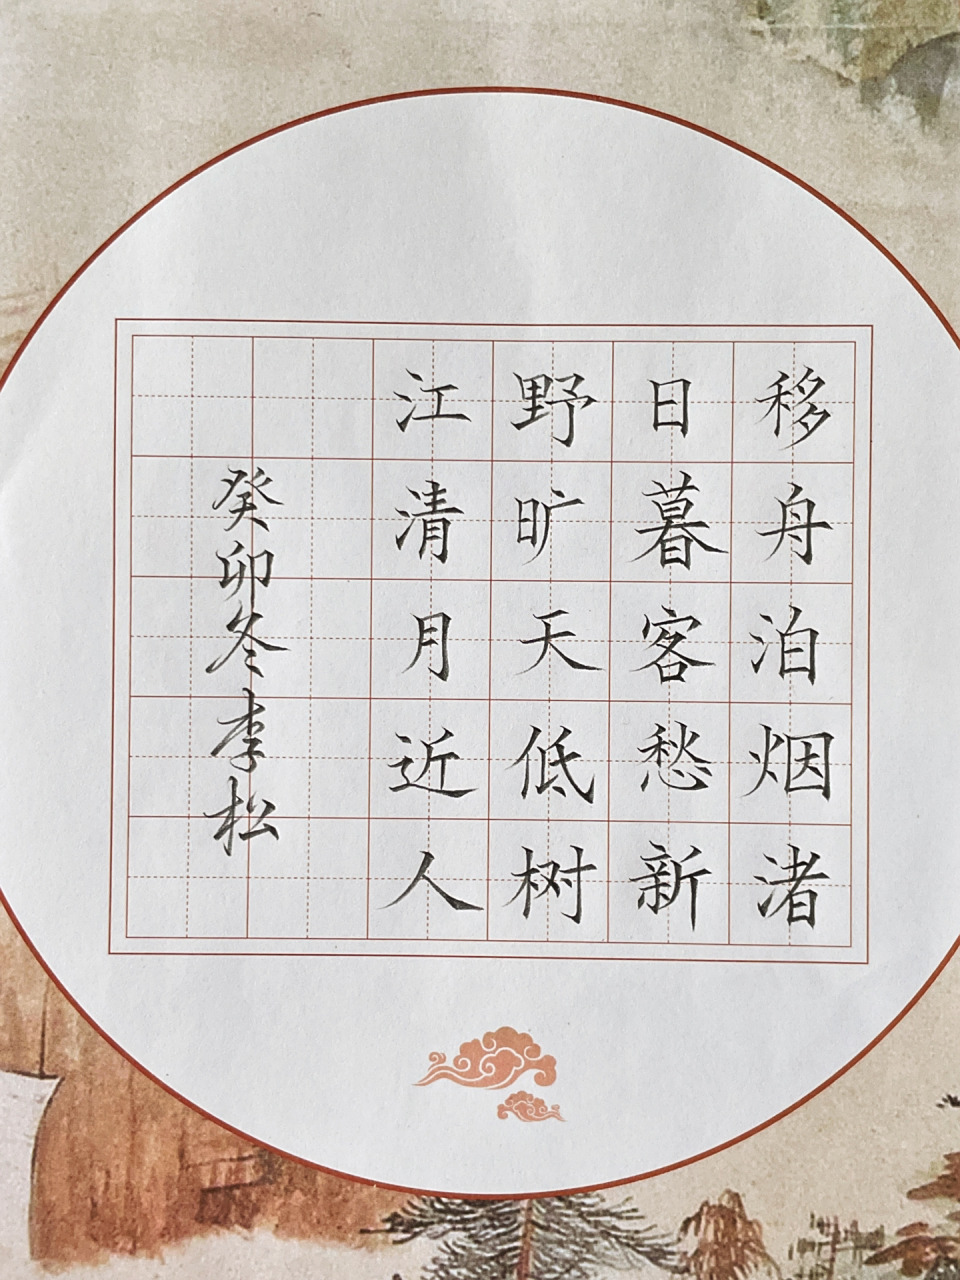 移舟泊烟渚
日暮客愁新
野旷天低树
江清月近人
癸卯冬李松